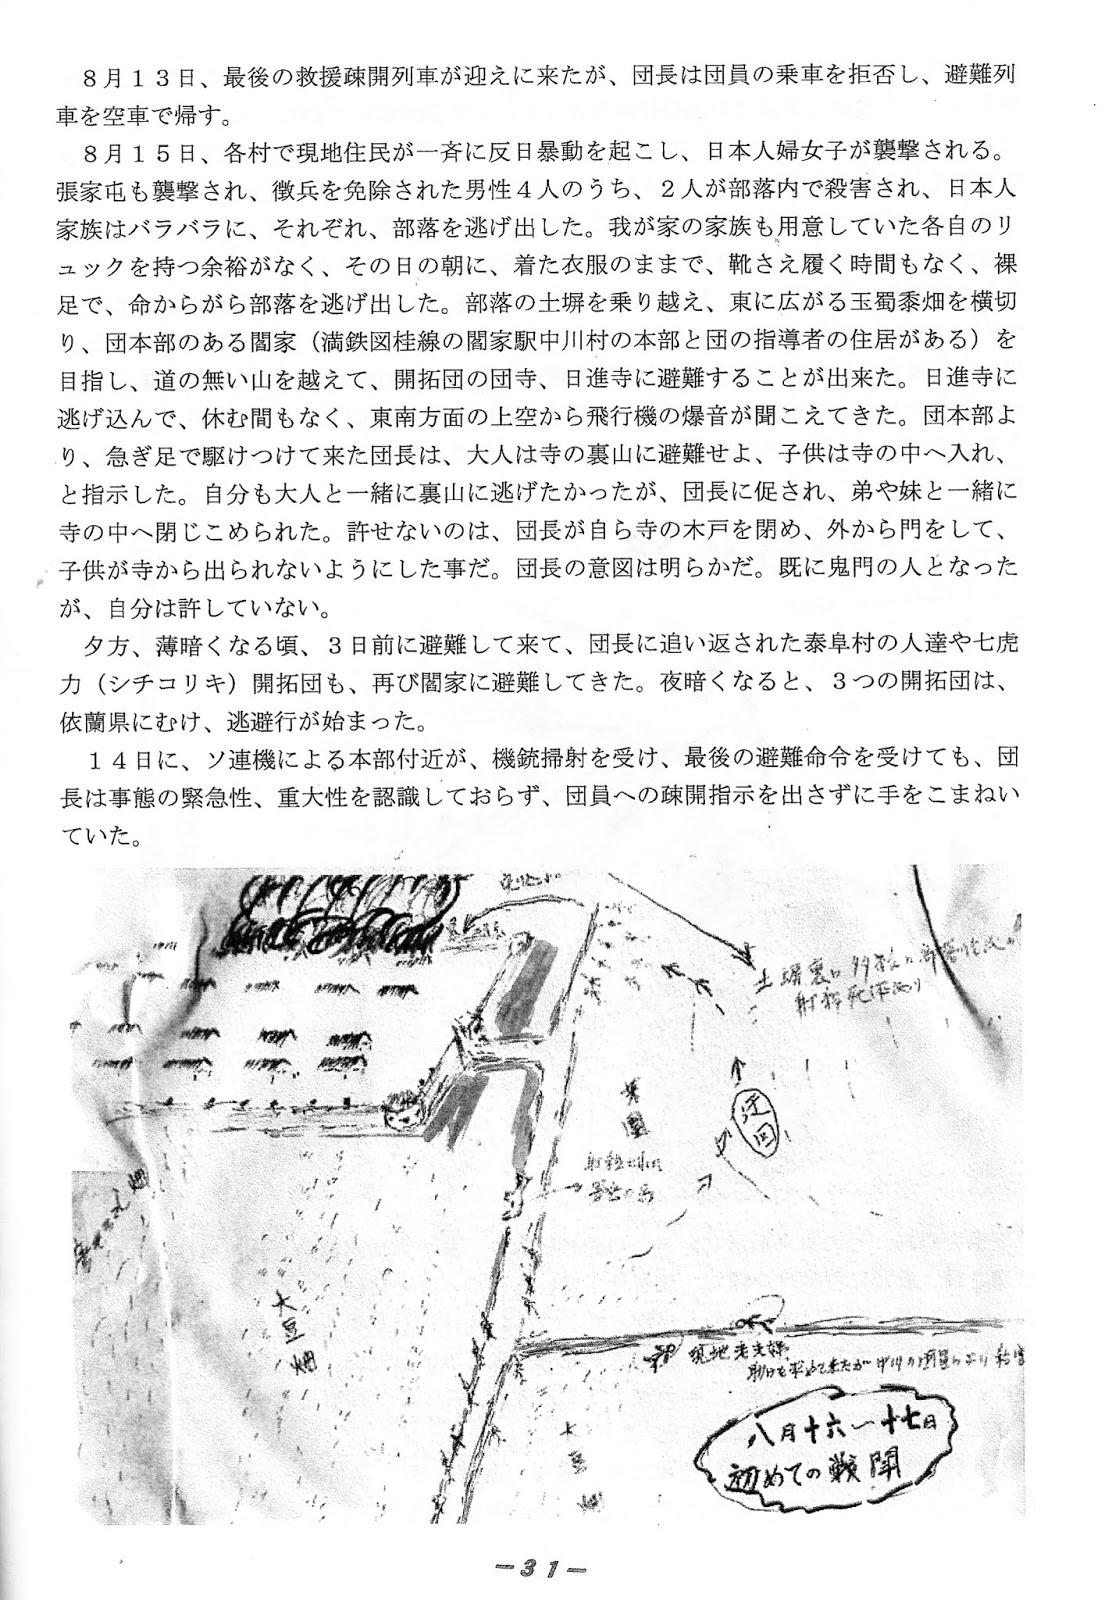 ８月１３日、最後の救援疎開列車が迎えに来たが、団長は団員の乗車を拒否し、避難列
車を空車で帰す。
８月１５日、各村で現地住民が一斉に反日暴動を起こし、日本人婦女子が襲撃される。
張家屯も襲撃され、徴兵を免除された男性４人のうち、２人が部落内で殺害され、日本人
家族はバラバラに、それぞれ、部落を逃げ出した。我が家の家族も用意していた各自のリ
ュックを持つ余裕がなく、その日の朝に、着た衣服のままで、靴さえ履く時間もなく、裸
足で、命からがら部落を逃げ出した。部落の土塀を乗り越え、東に広がる玉蜀黍畑を横切
り、団本部のある閻家（満鉄図桂線の閻家駅中川村の本部と団の指導者の住居がある）を
目指し、道の無い山を越えて、開拓団の団寺、日進寺に避難することが出来た。日進寺に
逃げ込んで、休む間もなく、東南方面の上空から飛行機の爆音が聞こえてきた。団本部よ
り、急ぎ足で駆けつけて来た団長は、大人は寺の裏山に避難せよ、子供は寺の中へ入れ、
と指示した。自分も大人と一緒に裏山に逃げたかったが、団長に促され、弟や妹と一緒に
寺の中へ閉じこめられた。許せないのは、団長が自ら寺の木戸を閉め、外から門をして、
子供が寺から出られないようにした事だ。団長の意図は明らかだ。既に鬼門の人となった
が、自分は許していない。
夕方、薄暗くなる頃、３日前に避難して来て、団長に追い返された泰阜村の人達や七虎
力（シチコリキ）開拓団も、再び閻家に避難してきた。夜暗くなると、３つの開拓団は、
依蘭県にむけ、逃避行が始まった。
１４日に、ソ連機による本部付近が、機銃掃射を受け、最後の避難命令を受けても、団
長は事態の緊急性、重大性を認識しておらず、団員への疎開指示を出さずに手をこまねい
ていた。
土塀裏に
迂回
大豆畑
現地老夫婦
大豆畑
八月十六一十七日
初めての戦闘
－３１－